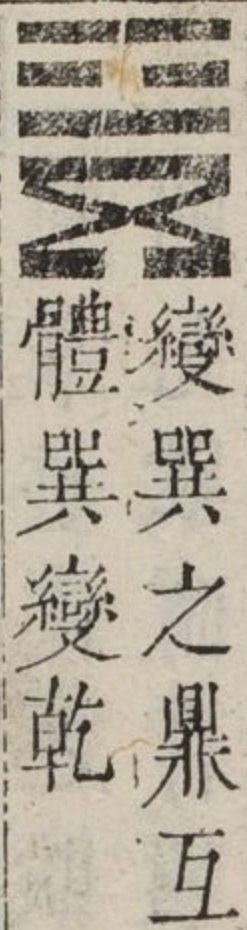 變巽之鼎互
體巽變乾